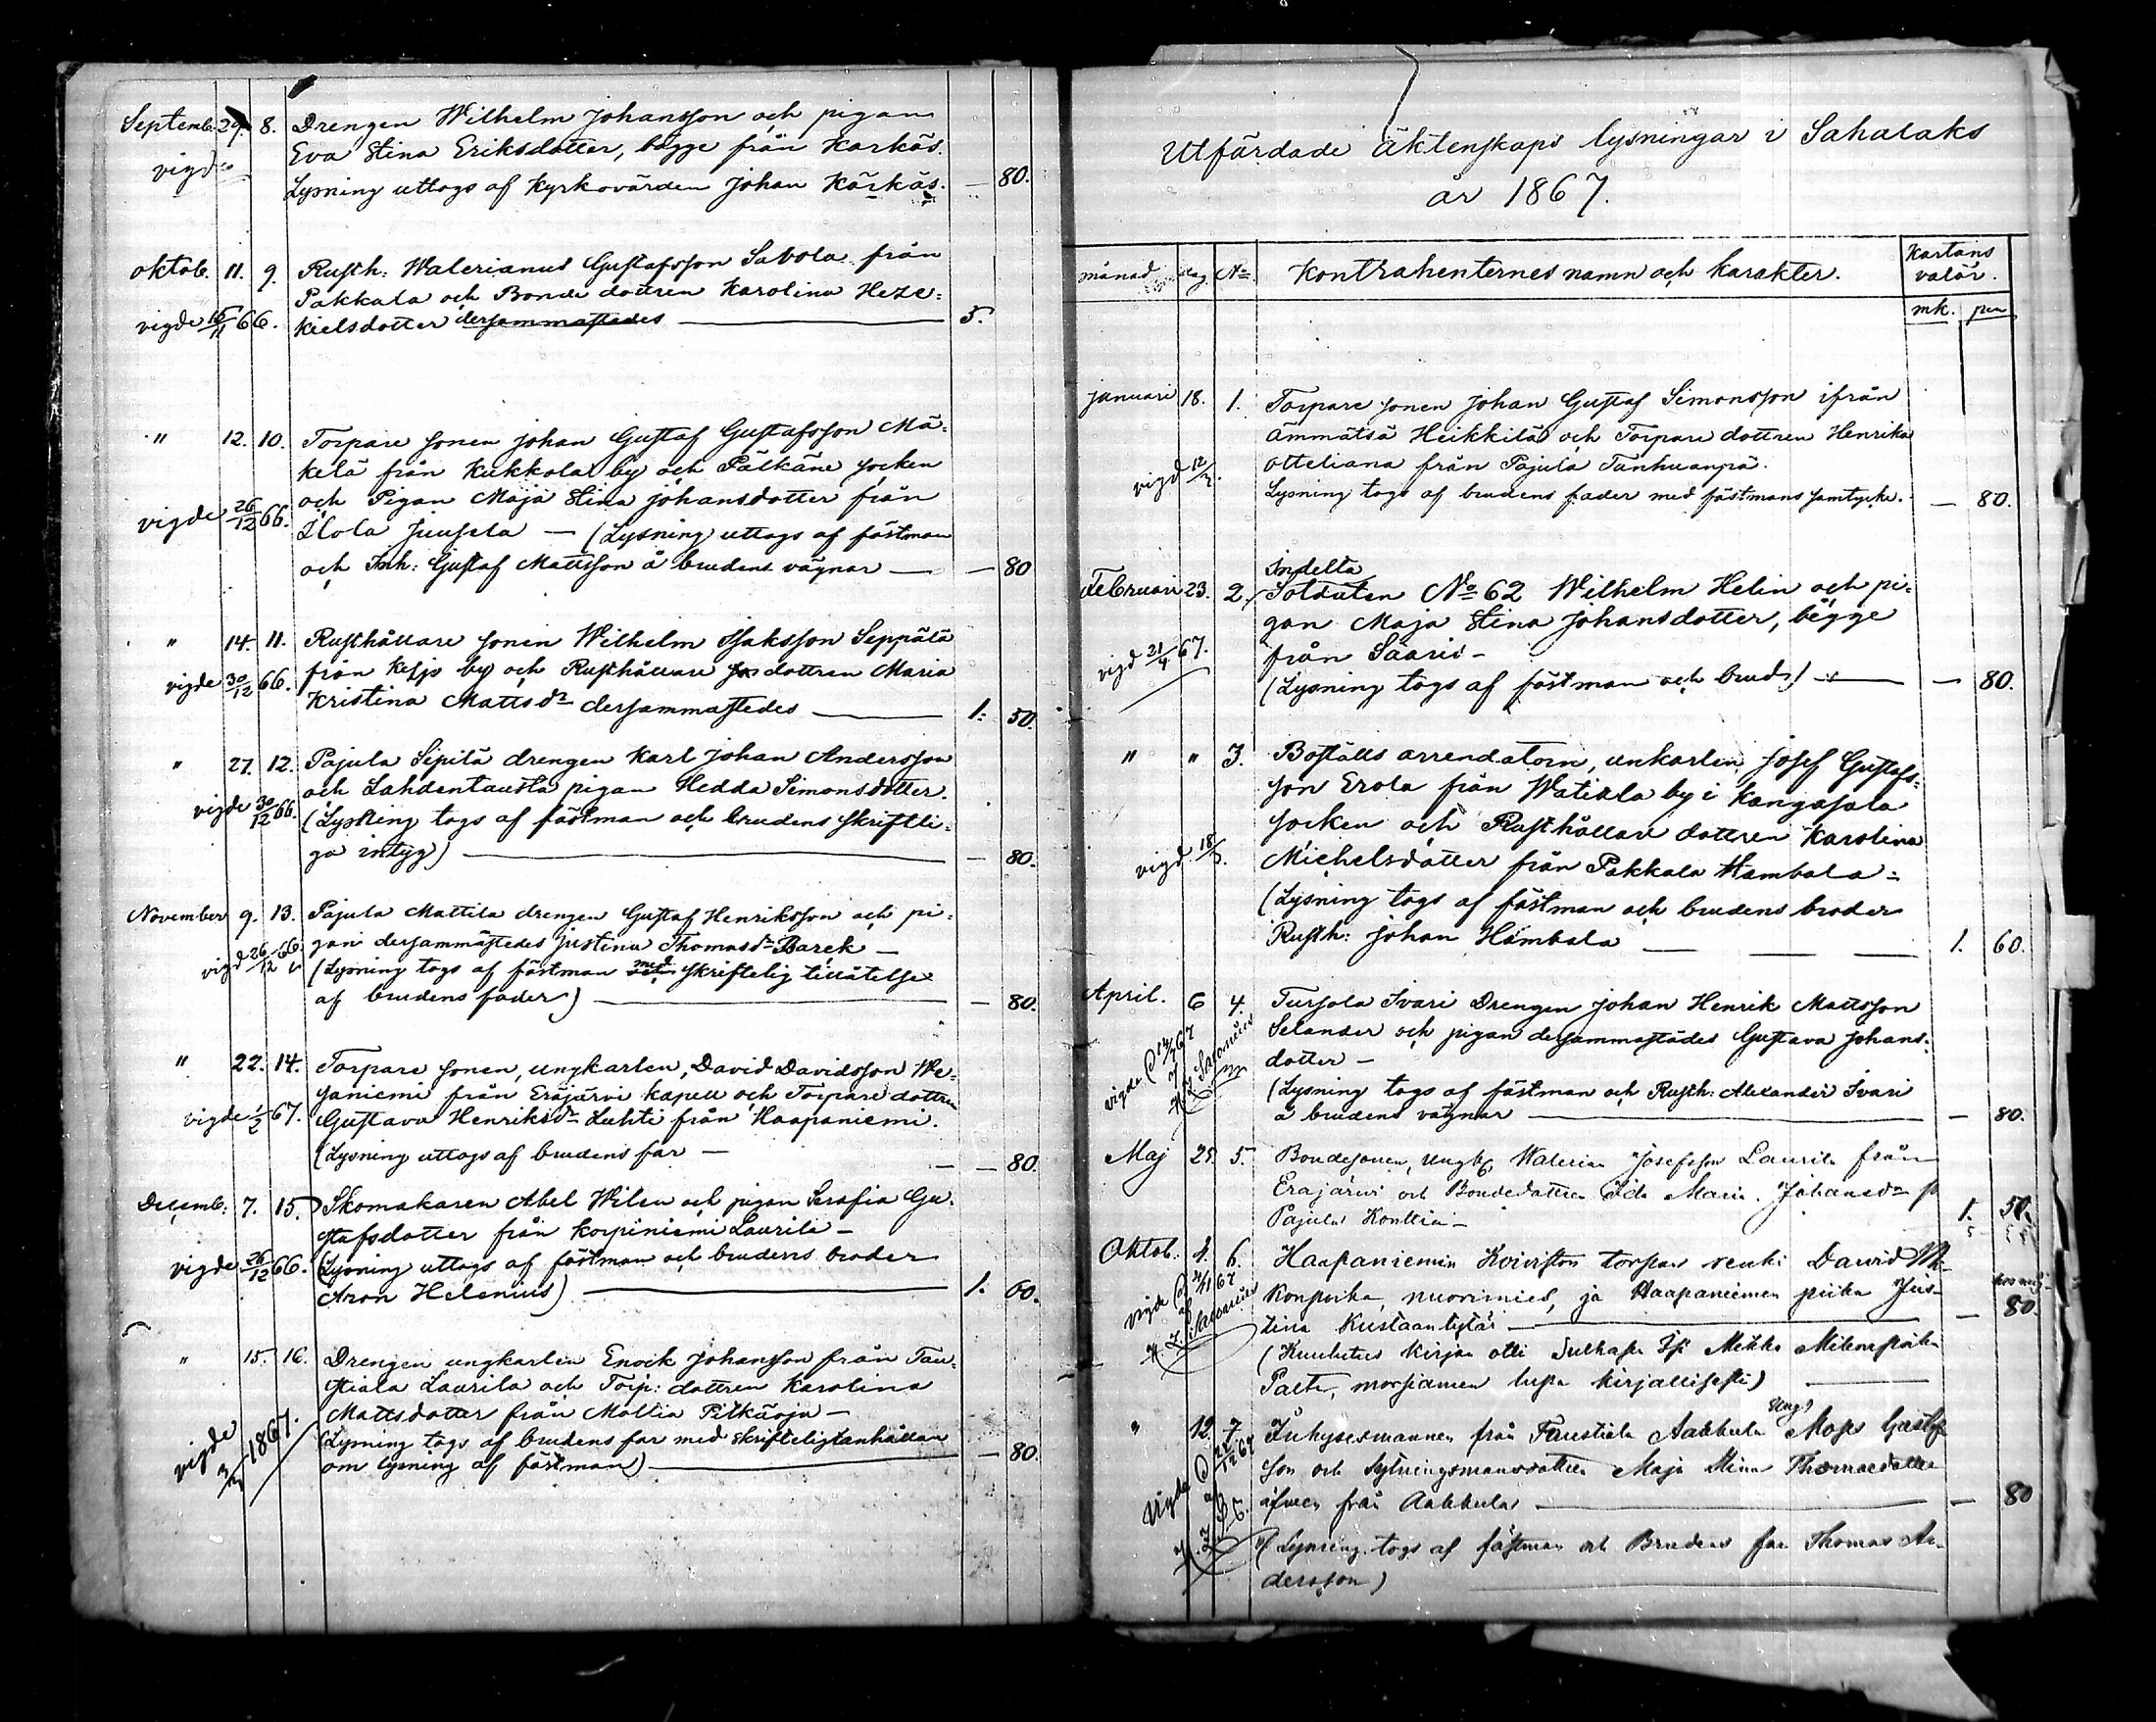 Septemb. 29. 8. Drengen Wilhelm Johansson och pigan
vigde Eva Stina Eriksdotter, bägge från Karkäs.
Lysning uttogs af Kyrkovärden Johan Kärkäs. — 80.
Oktob. 11. 9. Rusth: Walerianus Gustafsson Savola från
Pakkala och Bonde dottren Karolina Heze-
vigde 15/11 66. kielsdotter dersammastädes — 5.
" 12. 10. Torpare sonen Johan Gustaf Gustafsson Mä-
kelä från Kukkola by och Pälkäne socken
vigde 26/12 66. och Pigan Maja Stina Johansdotter från
Ilola Juusela — (Lysning uttogs af fästman
och Inh: Gustaf Mattsson å brudens vägnar — — 80
" 14. 11. Rusthållare sonen Wilhelm Isaksson Seppälä
vigde 30/12 66. från Kesjo by och Rusthållare dottren Maria
Kristina Mattsdr dersammastedes — 1: 50.
" 27. 12. Pajula Sipilä drengen Karl Johan Andersson
och Lahdentausta pigan Hedda Simonsdotter.
vigde 30/12 66. (Lysning togs af fästman och brudens skriftli-
ga intyg) — — 80.
November 9. 13. Pajula Mattila drengen Gustaf Henriksson och pi-
gan dersammastedes Justina Thomasdr Barck —
vigd 26/12 66. (Lysning togs af fästman med skriftelig tillåtelse
af brudens fader) — — 80.
" 22. 14. Torpare sonen, ungkarlen, David Davidsson We-
saniemi från Eräjärvi kapell och Torpare dottren
vigde 1/2 67. Gustava Henriksdr Luhti från Haapaniemi.
(Lysning uttogs af brudens far — — 80.
Decemb: 7. 15. Skomakaren Abel Wilen och pigan Serafia Gu-
stafsdotter från Korpiniemi Laurila —
vigde 26/12 66. (Lysning uttogs af fästman och brudens broder
Aron Helenius) — 1. 60.
" 15. 16. Drengen ungkarlen Enock Johansson från Tau-
stiala Laurila och Torp: dottren Karolina
Mattsdotter från Mältiä Pitkäoja —
vigde 3/2 1867. (Lysning togs af brudens far med skrifteligtanhållan
om lysning af fästman) — — 80.
Utfärdade äktenskaps lysningar i Sahalaks
år 1867.
månad dag No Kontrahenternes namn och karakter. Kartans valör.
mk. pen
Januari 18. 1. Torpare sonen Johan Gustaf Simonsson ifrån
Ämmätsä Heikkilä och Torpare dottren Henrika
vigd 12/3. Otteliana från Pajula Tanhuanpä.
Lysning togs af brudens fader med fästmans samtycke. — 80.
Indelta
Februari 23. 2. Soldaten No 62 Wilhelm Helin och pi-
gan Maja Stina Johansdotter, bägge
vigd 21/4 67. från Saaris —
(Lysning togs af fästman och brud) — — 80.
" " 3. Boställs arrendatorn, unkarlen Josef Gustafs-
son Erola från Watiala by i Kangasala
socken och Rusthållare dottren Karolina
vigd 18/5. Michelsdotter från Pakkala Hambala —
(Lysning togs af fästman och brudens broder
Rusth: Johan Hambala — 1. 60.
April. 6 4. Tursola Ivari Drengen Johan Henrik Mattsson
Selander och pigan dersammastädes Gustava Johans-
dotter —
vigde (Lysning togs af fästman och Rusth: Alexander Ivari
å brudens vägnar — — 80.
Maj 25. 5. Bondesonen, Ungk. Walerian Josefsson Laurila från
Eräjärvi och Bondedottren Ida Maria Johansdr fr
Pajula Konttia — 1. 50.
Oktob. 4. 6. Haapaniemin Koiviston torpan renki David
vigde Konpoika, nuorimies, ja Haapaniemen piika Jus-
tina Kustaantytär — — 80.
(Kuulutus kirjan otti Sulhasen Mikko
morsiamen lupa kirjallisesti) —
Ung.
" 12. 7. Inhysesmannen från Taustiala Aakkula Moses Gustafs
son och Sytningsmansdottren Maja Stina Thomasdotter
Vigde 22/12 67 äfven från Aakkula — — 80
(Lysning togs af fästman och Brudens far Thomas An-
dersson) —